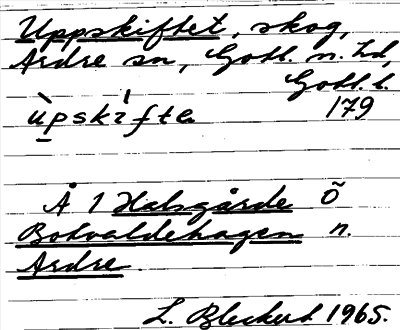 Uppskiftet, skog,
Ardre sn, Gotl. n. hd,
Gotl. l.
ùpskìfte 179
Å 1 Halsgårde Õ
Botvaldehagen n.
Ardre.
L. Bleckert 1965.